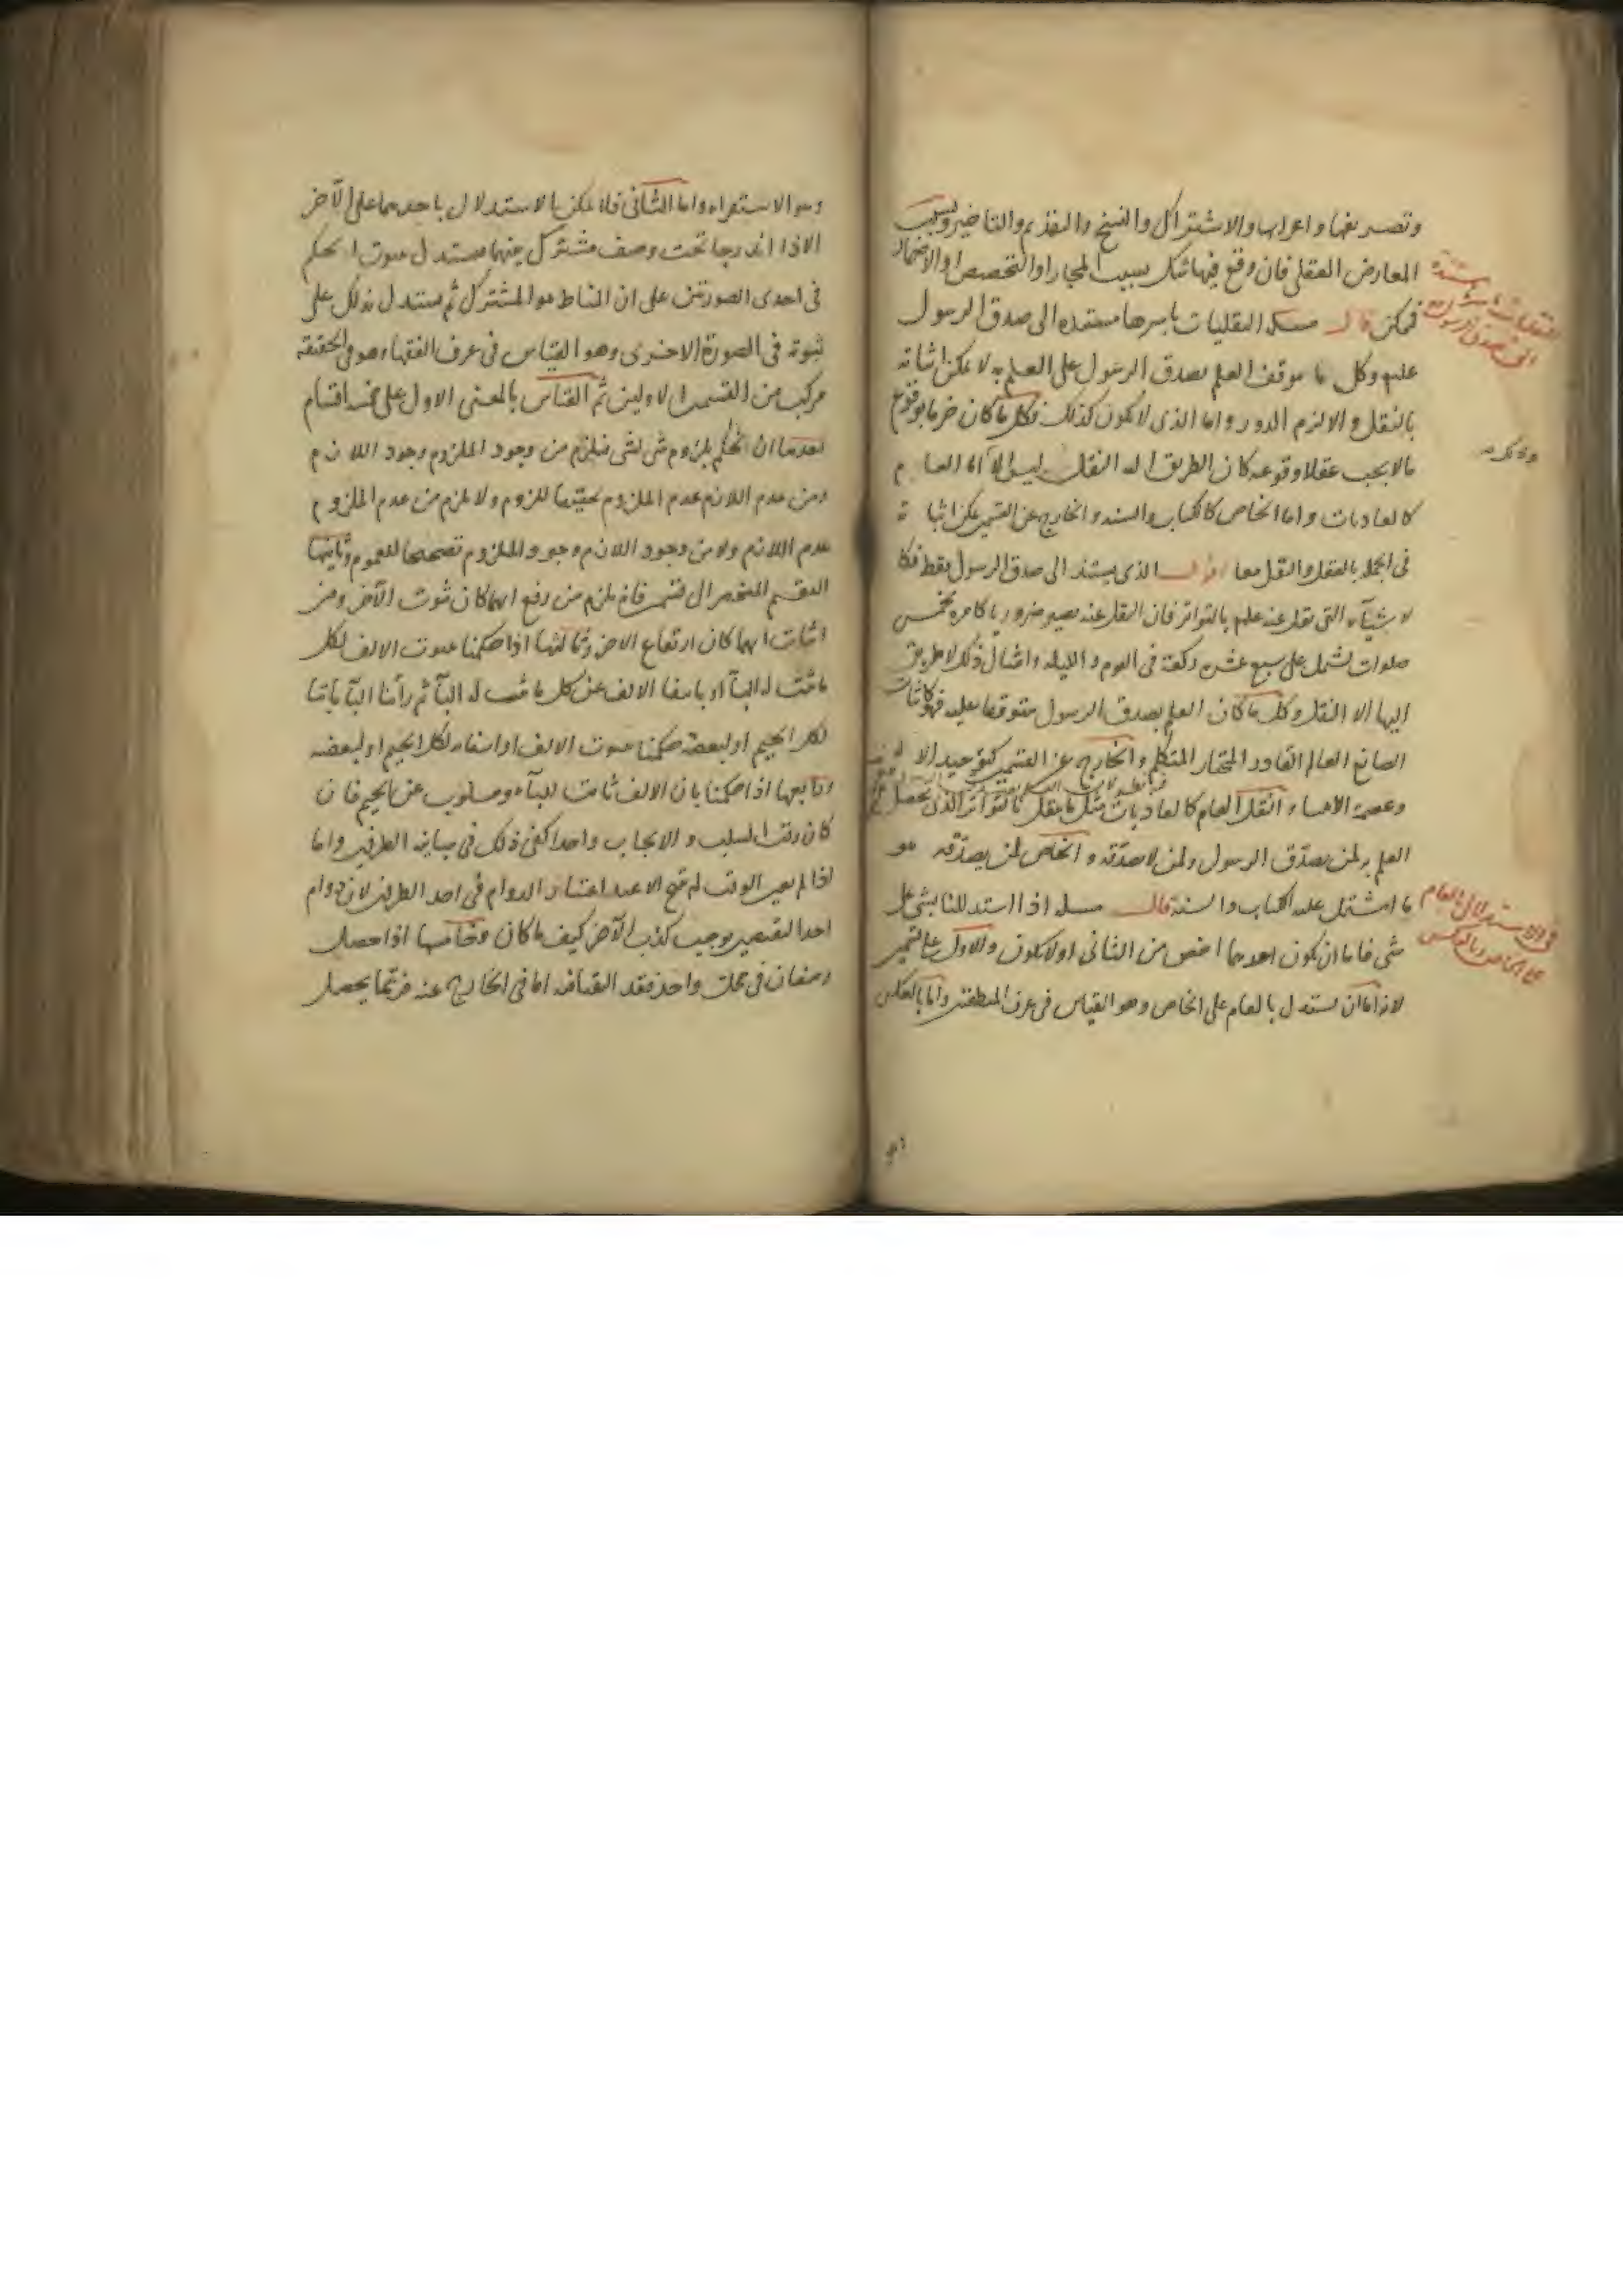 وتصريفها واعرابها والاشتراك والنسخ والتقديم والتاخير وبسبب
المعارض العقلى فان وقع فيها شك بسبب المجاز او التخصص او الاضمار
فمكن قال مسله النقليات باسرها مستنده الى صدق الرسول
عليه وكل ما موقف العلم بصدق الرسول على العلم به لا يمكن اثباته
بالنقل والا لزم الدور واما الذى لا يكون كذلك فكل ما كان خبرا بوقوع
ما لا يجب عقلا وقوعه كان الطريق اليه النقل ليس الا اما العام
كالعاديات واما الخاص كالكتاب والسنه والخارج عن القسمين يمكن اثباته
فى الجمله بالعقل والنقل معا اقول الذى يستند الى صدق الرسول فقط فكا
لاشيآء التى نقل عنه علم بالتواتر فان النقل عنه يصير ضروريا كامره بخمس
صلوات تشمل على سبع عشره ركعة فى اليوم والليله وامثال ذلك لا طريق
اليها الا النقل وكل ما كان العلم بصدق الرسول متوقفا عليه فهو كاثبات
الصانع العالم القادر المختار المتكلم والخارج عن القسمين كتوحيد الاله
وعصمة الانبياء والنقل العام كالعاديات مثل ما ينقل بالتواتر الذى يحصل
العلم به لمن يصدق الرسول ولمن لا يصدقه والخاص لمن يصدقه هو
ما اشتمل عليه الكتاب والسنة قال مسله اذا استدللنا بشى على
شى فاما ان يكون احدهما اخص من الثانى او لا يكون والاول على قسمين
لانه اما ان يستدل بالعام على الخاص وهو القياس فى عرف المنطقيين واما بالعكس
النقليات باسرها مستندة
الى صدق الرسول
فى الاستدلال بالعام
على الخاص وبالعكس
وهو الاستقراء واما الثانى فلا يمكن الاستدلال باحدهما على الآخر
الا اذا اندرجا تحت وصف مشترك بينهما فيستدل بثبوت الحكم
فى احدى الصورتين على ان المناط هو المشترك ثم يستدل بذلك على
ثبوته فى الصورة الاخرى وهو القياس فى عرف الفقهاء وهو فى الحقيقه
مركب من القسمين الاولين ثم القياس بالمعنى الاول على خمسه اقسام
احدها ان نحكم بلزوم شى لشى فيلزم من وجود الملزوم وجود اللازم
ومن عدم اللازم عدم الملزوم تحقيقا للزوم ولا يلزم من عدم الملزوم
عدم اللازم ولا من وجود اللازم وجود الملزوم تصحيحا للعموم وثانيها
التقسيم المنحصر الى قسمين فانه يلزم من رفع ايهما كان ثبوت الآخر ومن
اثبات ايهما كان ارتفاع الاخر وثالثها اذا حكمنا بثبوت الالف لكل
ما ثبت له البآء او بانتفا الالف عن كل ما ثبت له البآ ثم رأينا البآ ثابتا
لكل الجيم او لبعضه حكمنا بثبوت الالف او انتفاءه لكل الجيم او لبعضه
ورابعها اذا حكمنا بان الالف ثابت للبآء ومسلوب عن الجيم فان
كان وقت السلب والايجاب واحدا كفى ذلك فى مباينه الطرفين واما
اذا لم يعين الوقت لم ينتج الا عند اعتبار الدوام فى احد الطرفين لان دوام
احد النقيضين يوجب كذب الآخر كيف ما كان وخامسها اذا حصل
وصفان فى محل واحد فقد التقيا فيه اما فى الخارج عنه فربما يحصل